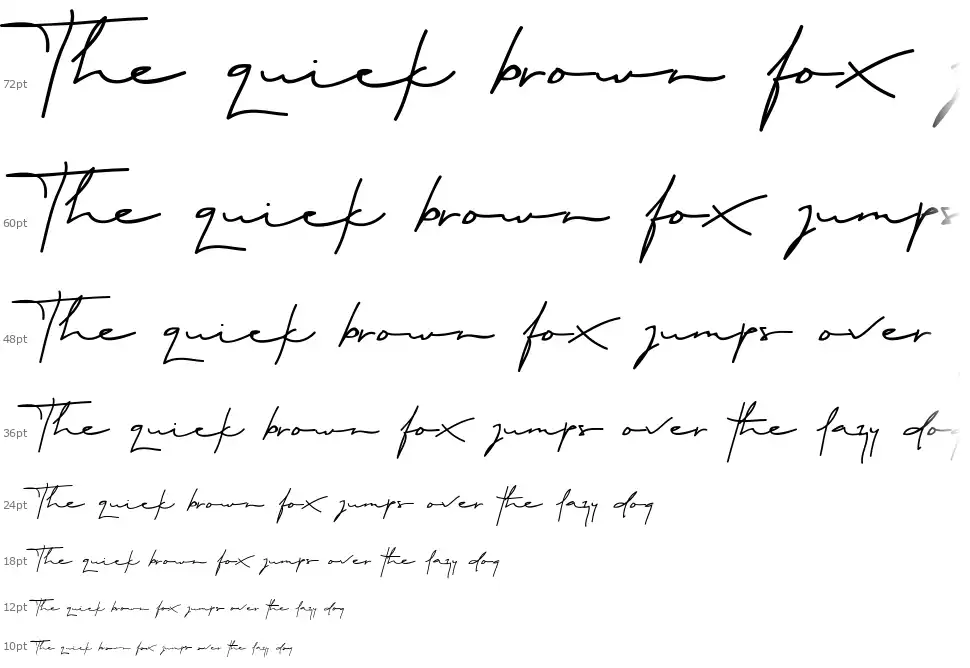 72pt The quick brown fox
60pt The quick brown fox jumps
48pt The quick brown fox jumps over
36pt The quick brown fox jumps over the lazy dog
24pt The quick brown fox jumps over the lazy dog
18pt The quick brown fox jumps over the lazy dog
12pt The quick brown fox jumps over the lazy dog
10pt The quick brown fox jumps over the lazy dog